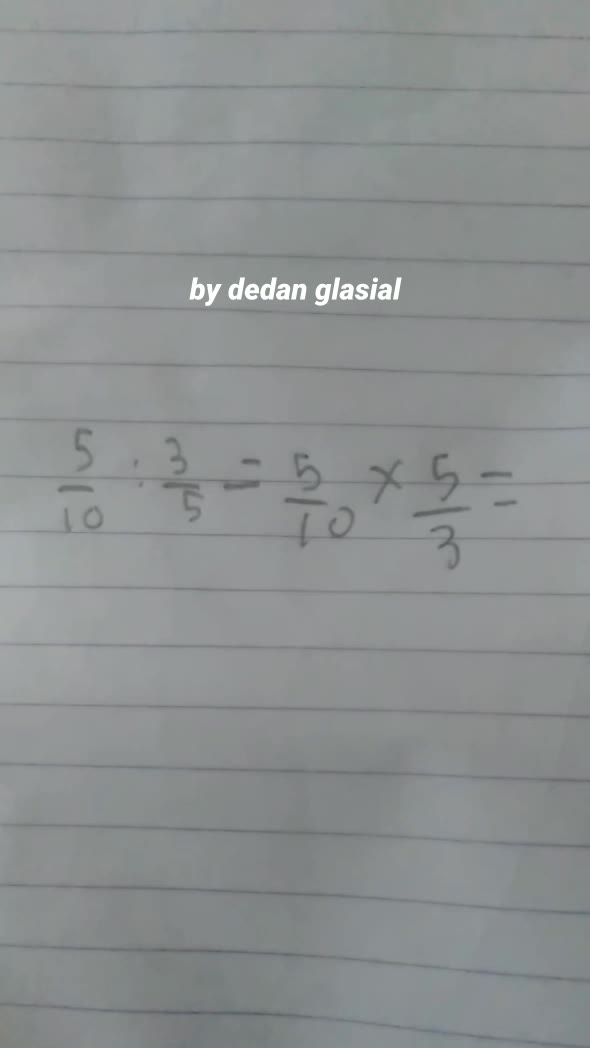 by dedan glasial
5/10 : 3/5 = 5/10 × 5/3 =